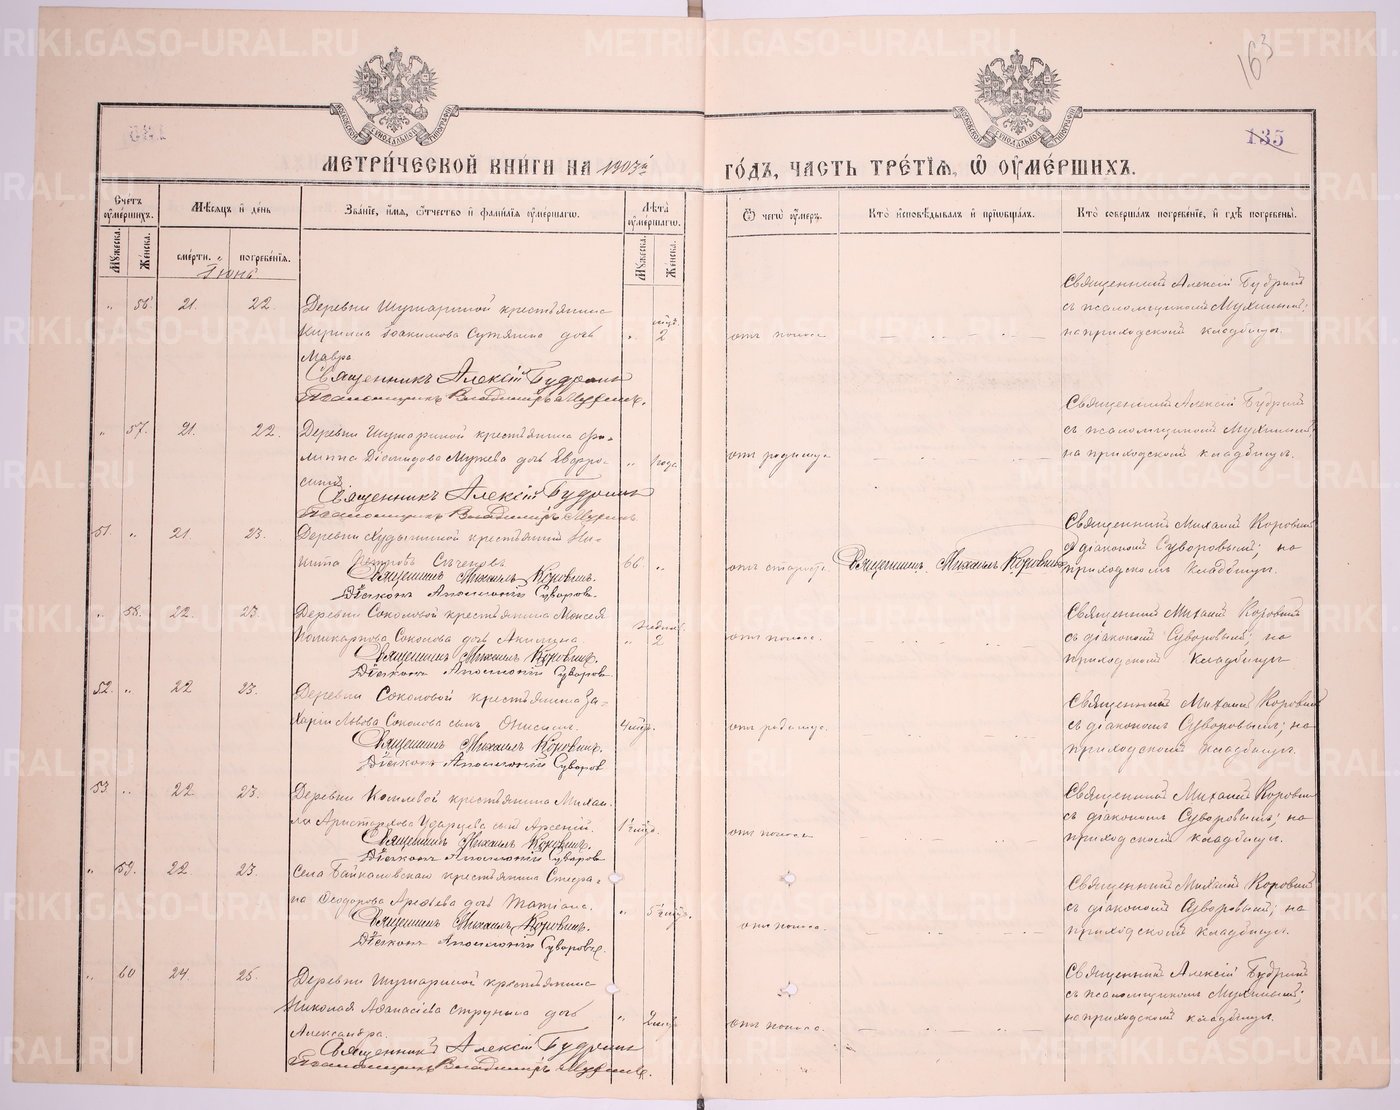 METRIKI.GASO-URAL.RU
163
135
МЕТРИ́ЧЕСКОЙ КНИ́ГИ НА 1903й
ГО́ДЪ, ЧАСТЬ ТРЕ́ТІѦ, Ѡ ОУМЕ́РШИХЪ.
Счетъ оумершихъ.
Мѣсяцъ и день
Званіе, имя, отчество и фамилія оумершаго.
Лѣта оумершаго.
Ѿ чего оумеръ.
Кто исповѣдывалъ и пріобщалъ.
Кто совершалъ погребеніе, и гдѣ погребены.
Мужеска.
Женска.
смерти.
погребенія.
Мужеска.
Женска.
Іюнь
„ 56. 21. 22. Деревни Шутариной крестьянина
Кирилла Іоакимова Сутягина дочь
Мавра
„ 2 мѣс.
отъ поноса
Священникъ Алексій Будринъ
съ псаломщикомъ Мухинымъ;
на приходскомъ кладбищѣ.
Священникъ Алексій Будринъ
Псаломщикъ Владиміръ Мухинъ.
„ 57. 21. 22. Деревни Шутариной крестьянина Фи-
липпа Діомидова дочь Евфро-
синія
„ 1 года
отъ родимца
Священникъ Алексій Будринъ
съ псаломщикомъ Мухинымъ;
на приходскомъ кладбищѣ.
Священникъ Алексій Будринъ
Псаломщикъ Владиміръ Мухинъ.
51. „ 21. 23. крестьянинъ Ни-
кита Петровъ
66. „
отъ старости
Священникъ Михаилъ Коровинъ
Священникъ Михаилъ Коровинъ
съ діакономъ Суворовымъ; на
приходскомъ кладбищѣ.
Священникъ Михаилъ Коровинъ.
Діаконъ Аполлоній Суворовъ.
„ 58. 22. 23. Деревни Соколовой крестьянина Моисея
Поликарпова Соколова дочь Акилина
„ 2 недѣль.
отъ поноса.
Священникъ Михаилъ Коровинъ
съ діакономъ Суворовымъ; на
приходскомъ кладбищѣ.
Священникъ Михаилъ Коровинъ.
Діаконъ Аполлоній Суворовъ
52. „ 22 23. Деревни Соколовой крестьянина За-
харіи Львова Соколова сынъ
4 мѣс.
отъ родимца.
Священникъ Михаилъ Коровинъ
съ діакономъ Суворовымъ; на
приходскомъ кладбищѣ.
Священникъ Михаилъ Коровинъ.
Діаконъ Аполлоній Суворовъ
53. „ 22 23. Деревни крестьянина Михаи-
ла Аристархова Ударцева сынъ Арсеній.
отъ поноса
Священникъ Михаилъ Коровинъ
съ діакономъ Суворовымъ; на
приходскомъ кладбищѣ.
Священникъ Михаилъ Коровинъ.
Діаконъ Аполлоній Суворовъ
„ 59. 22 23. Села Байкаловскаго крестьянина Стефа-
на Ѳеодорова дочь Татіана.
отъ поноса.
Священникъ Михаилъ Коровинъ
съ діакономъ Суворовымъ; на
приходскомъ кладбищѣ.
Священникъ Михаилъ Коровинъ.
Діаконъ Аполлоній Суворовъ.
„ 60 24. 25. Деревни Шутариной крестьянина
Николая Аѳанасіева Струнина дочь
Александра.
„ 2 мѣс.
отъ поноса.
Священникъ Алексій Будринъ
съ псаломщикомъ Мухинымъ;
на приходскомъ кладбищѣ.
Священникъ Алексій Будринъ
Псаломщикъ Владиміръ Мухинъ.